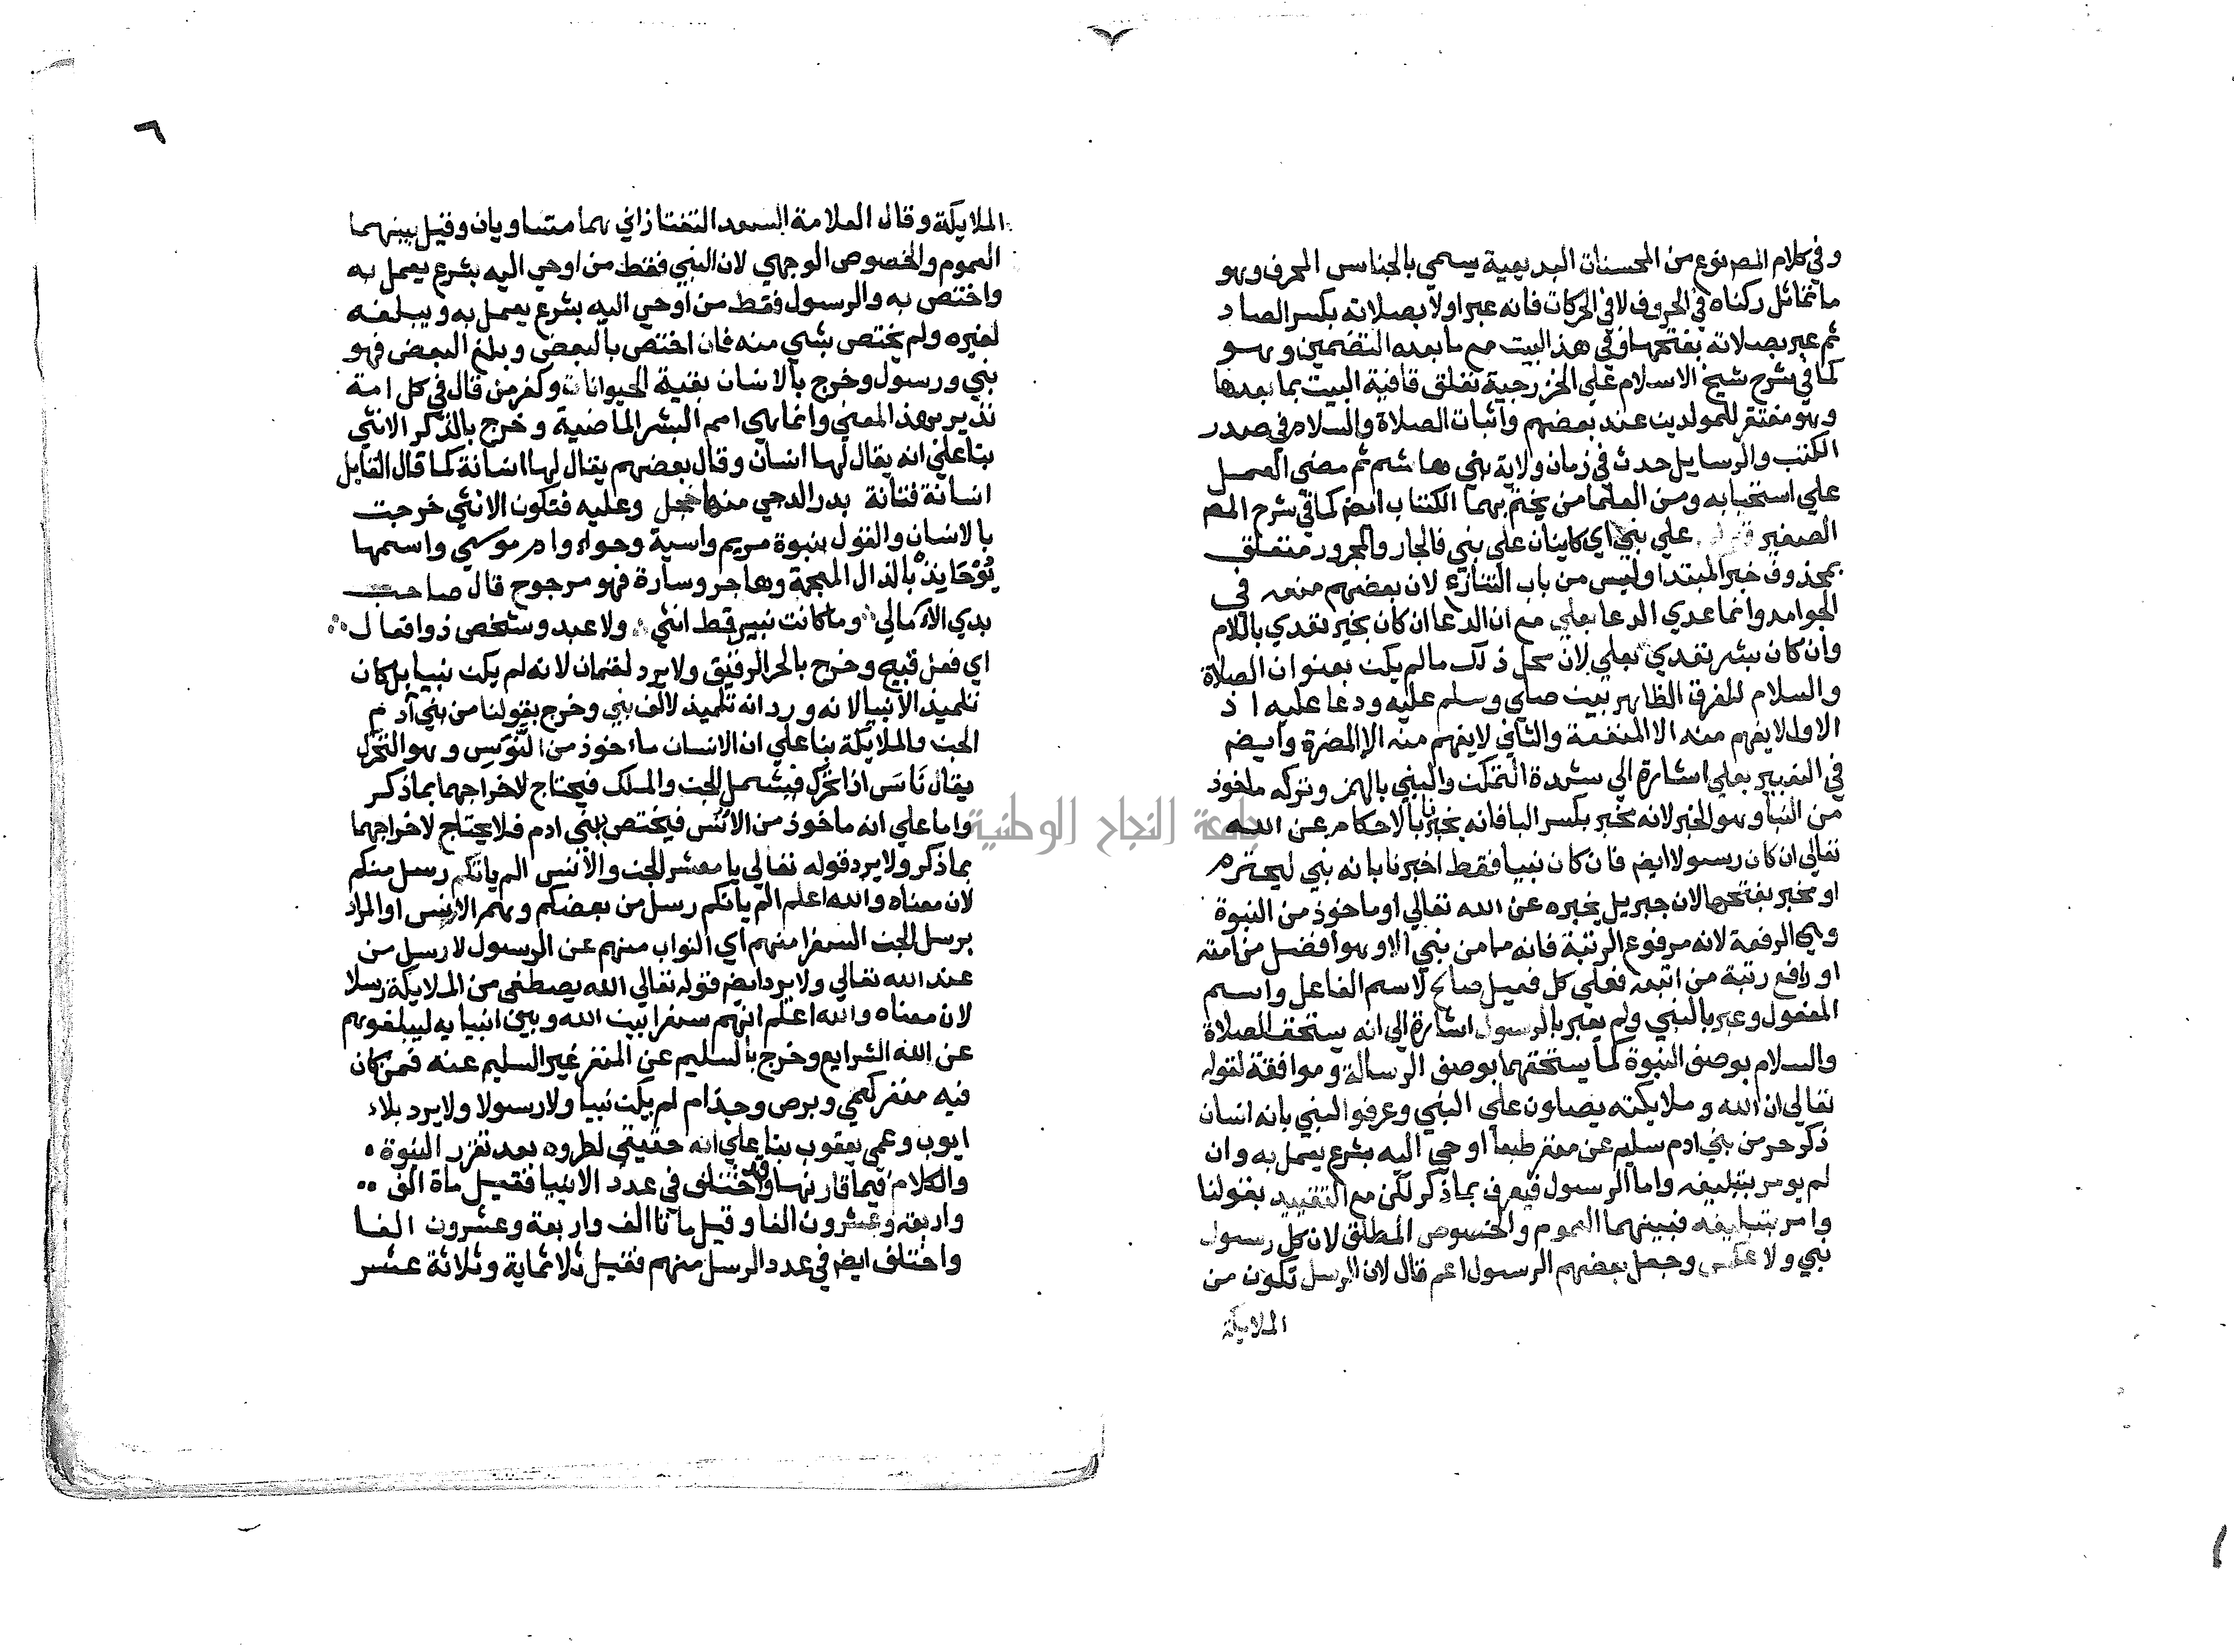 وفي كلام المصر نوع من المحسنات البديعية يسمي بالجناس المحرف وهو
ما تماثل ركناه في الحروف لا في الحركات فانه عبر اولا بصلاته بكسر الصاد
ثم عبر بصلاته بفتحها وفي هذا البيت مع ما بعده التضمين وهو
كما في شرح شيخ الاسلام علي الخزرجية تعلق قافية البيت بما بعدها
وهو مغتفر للمولدين عند بعضهم واثبات الصلاة والسلام في صدر
الكتب والرسايل حدث في زمان ولاية بني هاشم ثم مضي العمل
علي استحبابه ومن العلما من يختم بهما الكتاب ايضر كما في شرح المصر
الصغير علي نبي اي كاينان علي نبي فالجار والمجرور متعلق
بمحذوف خبر المبتدا وليس من باب التنازع لان بعضهم منعه في
الجوامد وانما عدي الدعا بعلي مع ان الدعا ان كان بخير تعدي باللام
وان كان بشر تعدي بعلي لان محل ذلك ما لم يكن بعنوان الصلاة
والسلام للفرق الظاهر بين صلي وسلم عليه ودعا عليه اذ
الاول لا يفهم منه الا المنفعة والثاني لا يفهم منه الا المضرة وايضر
في التعبير بعلي اشارة الي شدة التمكن والنبي بالهمز وتركه ماخوذ
من النبا وهو الخبر لانه مخبر بكسر البا فانه يخبرنا بالاحكام عن الله
تعالي ان كان رسولا ايضر فان كان نبيا فقط اخبرنا بانه نبي ليحترم
او مخبر بفتحها لان جبريل يخبره عن الله تعالي او ماخوذ من النبوة
وهي الرفعة لانه مرفوع الرتبة فانه ما من نبي الا وهو افضل من امته
او رافع رتبة من اتبعه فعلي كل فعيل صالح لاسم الفاعل واسم
المفعول وعبر بالنبي ولم يعبر بالرسول اشارة الي انه يستحق الصلاة
والسلام بوصف النبوة كما يستحقهما بوصف الرسالة وموافقة لقوله
تعالي ان الله وملايكته يصلون علي النبي وعرفوا النبي بانه انسان
ذكر حر من بني ادم سليم عن منفر طبعا اوحي اليه بشرع يعمل به وان
لم يومر بتبليغه واما الرسول فيعرف بما ذكر لكن مع التقييد بقولنا
وامر بتبليغه فبينهما العموم والخصوص المطلق لان كل رسول
نبي ولا عكس وجعل بعضهم الرسول اعم قال لان الرسل تكون من
الملايكة
٦
الملايكة وقال العلامة السعد التفتازاني هما متساويان وقيل بينهما
العموم والخصوص الوجهي لان النبي فقط من اوحي اليه بشرع يعمل به
واختص به والرسول فقط من اوحي اليه بشرع يعمل به ويبلغه
لغيره ولم يختص بشي منه فان اختص بالبعض وبلغ البعض فهو
نبي ورسول وخرج بالانسان بقية الحيوانات وكفر من قال في كل امة
نذير بهذا المعني وانما هي امم البشر الماضية وخرج بالذكر الانثي
بنا علي انه يقال لها انسان وقال بعضهم يقال لها انسانة كما قال القايل
انسانة فتانة بدر الدجي منها خجل وعليه فتكون الانثي خرجت
بالانسان والقول بنبوة مريم واسية وحواء وام موسي واسمها
يُوْحَايِذْ بالذال المعجمة وهاجر وسارة فهو مرجوح قال صاحب
بدي الامالي وما كانت نبيا قط انثي ولا عبد وشخص ذو افعال
اي فعل قبيح وخرج بالحر الرقيق ولا يرد لقمان لانه لم يكن نبيا بل كان
تلميذ الانبيا لانه ورد انه تلميذ لالف نبي وخرج بقولنا من بني آدم
الجن والملايكة بنا علي ان الانسان ماءخوذ من النَّوَسِ وهو التحرك
يقال نَاسَ اذا تحرك فيشمل الجن والملك فيحتاج لاخراجهما بما ذكر
واما علي انه ماخوذ من الاُنْس فيختص ببني ادم فلا يحتاج لاخراجهما
بما ذكر ولا يرد قوله تعالي يا معشر الجن والانس الم ياتكم رسل منكم
لان معناه والله اعلم الم ياتكم رسل من بعضكم وهم الانس او المراد
برسل الجن السفرا منهم اي النواب منهم عن الرسول لا رسل من
عند الله تعالي ولا يرد ايضر قوله تعالي الله يصطفي من الملايكة رسلا
لان معناه والله اعلم انهم سفرا بين الله وبين انبيايه ليبلغوهم
عن الله الشرايع وخرج بالسليم عن المنفر غير السليم عنه فمن كان
فيه منفر كعمي وبرص وجذام لم يكن نبيا ولا رسولا ولا يرد بلاء
ايوب وعمي يعقوب بنا علي انه حقيقي لطروه بعد تقرر النبوة
والكلام فيما قارنها وقد اختلف في عدد الانبيا فقيل ماة الف
واربعة وعشرون الفا وقيل مايتا الف واربعة وعشرون الفا
واختلف ايضر في عدد الرسل منهم فقيل ثلاثماية وثلاثة عشر
جامعة النجاح الوطنية